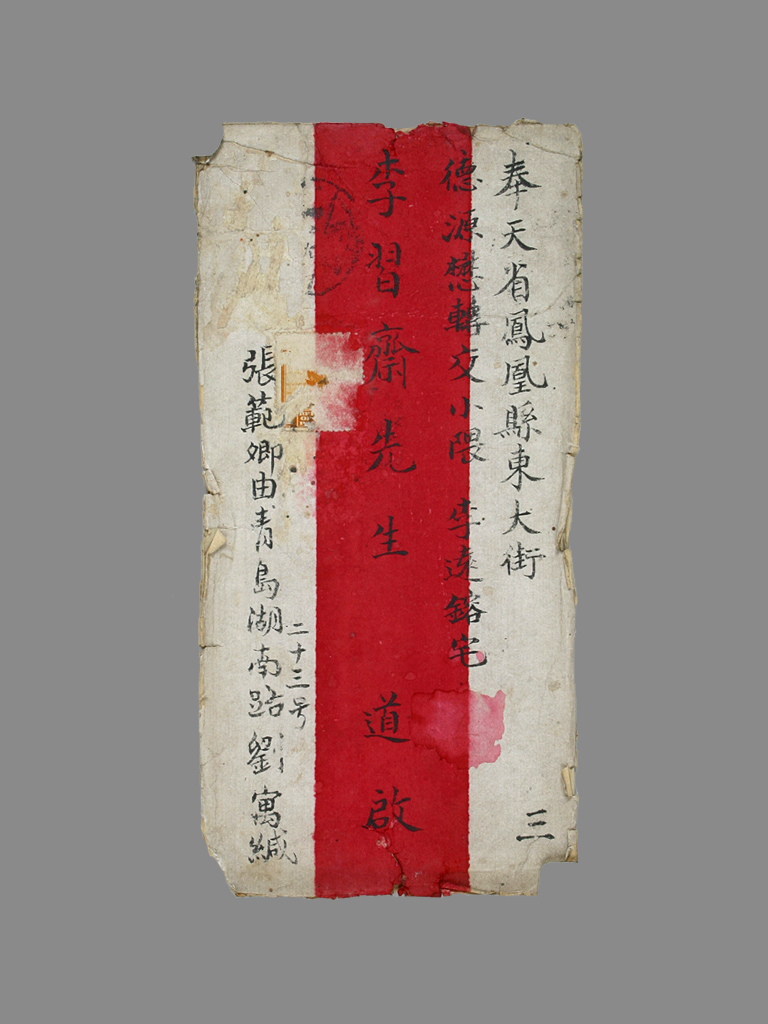 奉天省鳳凰縣東大街
德源懋轉交小隈 李遠鎔宅
三
李習齋先生 道啟
二十三号
張範卿由青島湖南路劉寓緘